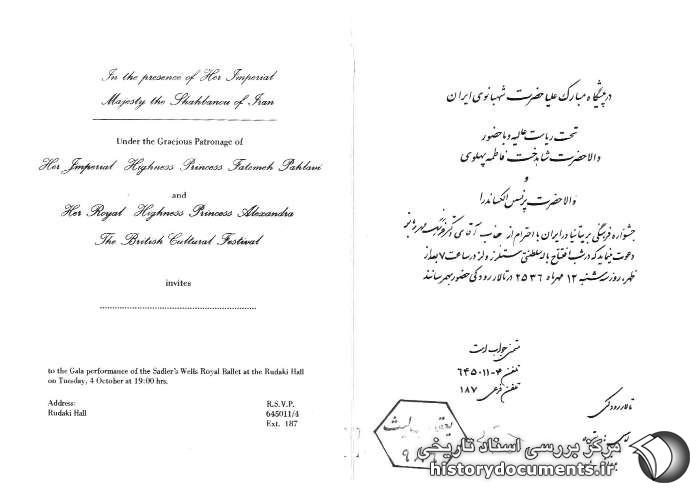 In the presence of Her Imperial
Majesty the Shahbanou of Iran
Under the Gracious Patronage of
Her Imperial Highness Princess Fatemeh Pahlavi
and
Her Royal Highness Princess Alexandra
The British Cultural Festival
invites
to the Gala performance of the Sadler's Wells Royal Ballet at the Rudaki Hall
on Tuesday, 4 October at 19:00 hrs.
Address:
Rudaki Hall
R.S.V.P.
645011/4
Ext. 187
در پیشگاه مبارک علیاحضرت شهبانوی ایران
تحت ریاست عالیه و با حضور
والاحضرت شاهدخت فاطمه پهلوی
و
والاحضرت پرنسس الکساندرا
جشنواره فرهنگی بریتانیا در ایران با احترام از جناب آقای دکتر فرهنگ مهر
دعوت مینماید که در شب افتتاح باله سلطنتی سدلرز ولز در ساعت ۷ بعد از
ظهر، روز سه‌شنبه ۱۲ مهرماه ۲۵۳۶ در تالار رودکی حضور بهمرسانند
متمنی جواب است
تلفن ۴-۶۴۵۰۱۱
تلفن فرعی ۱۸۷
تالار رودکی
مرکز بررسی اسناد تاریخی
historydocuments.ir